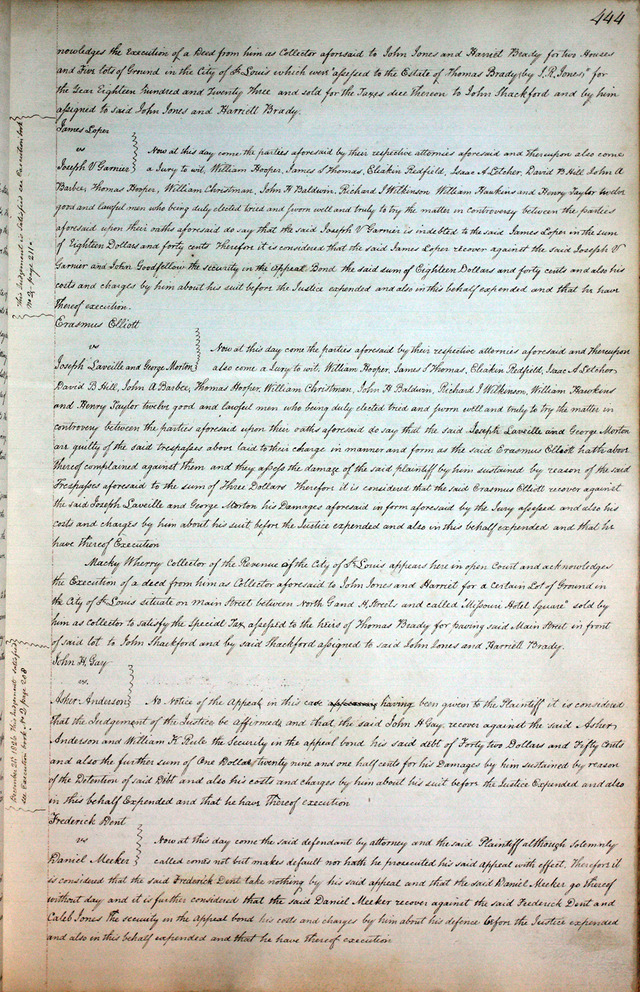 444
nowledges the Execution of a Deed from him as Collector aforesaid to John Jones and Harriet Brady for two Houses
and Five lots of Ground in the City of St Louis which were assessed to the Estate of Thomas Brady by I.R. Jones for
the Year Eighteen hundred and Twenty Three and sold for the Taxes due Thereon to John Shackford and by him
assigned to said John Jones and Harriell Brady.
James Loper
vs
Joseph V Garnier
Now at this day come the parties aforesaid by their respective attornies aforesaid and Thereupon also come
a Jury to wit, William Hooper, James S Thomas, Eleakin Redfield, Isaac A Letcher, David B Hill, John A
Barbee, Thomas Hooper, William Christman, John H Baldwin, Richard I Wilkinson William Hawkins and Henry Taylor twelve
good and lawful men who being duly elected tried and sworn well and truly to try the matter in controversy between the parties
aforesaid upon their oaths aforesaid do say that the said Joseph V Garnier is indebted to the said James Loper in the sum
of Eighteen Dollars and forty cents Therefore it is considered that the said James Loper recover against the said Joseph V
Garnier and John Goodfellow the security in the Appeal Bond the said sum of Eighteen Dollars and forty cents and also his
costs and charges by him about his suit before the Justice expended and also in this behalf expended and that he have
thereof execution.
This Judgement is Satisfied see Execution book
No D, page 211.
Erasmus Elliott
vs
Joseph Laveille and George Morton
Now at this day come the parties aforesaid by their respective attornies aforesaid and thereupon
also come a Jury to wit, William Hooper, James S Thomas, Eleakin Redfield, Isaac A Letcher,
David B Hill, John A Barbee, Thomas Hooper, William Christman, John H Baldwin, Richard I Wilkinson, William Hawkins
and Henry Taylor twelve good and lawful men who being duly elected tried and sworn well and truly to try the matter in
controversy between the parties aforesaid upon their oaths aforesaid do say that the said Joseph Laveille and George Morton
are guilty of the said trespasses above laid to their charge in manner and form as the said Erasmus Elliott hath above
thereof complained against them and they assess the damage of the said plaintiff by him sustained by reason of the said
Trespasses aforesaid to the sum of Three Dollars Therefore it is considered that the said Erasmus Elliott recover against
the said Joseph Laveille and George Morton his Damages aforesaid in form aforesaid by the Jury assessed and also his
costs and charges by him about his suit before the Justice expended and also in this behalf expended and that he
have thereof Execution
Macky Wherry Collector of the Revenue of the City of St Louis appears here in open Court and acknowledges
the Execution of a deed from him as Collector aforesaid to John Jones and Harriet for a certain Lot of Ground in
the City of St Louis situate on main Street between North G and H Streets and called "Missouri Hotel Square" sold by
him as collector to satisfy the Special Tax, assessed to the heirs of Thomas Brady for paving said Main Street in front
of said lot to John Shackford and by said Shackford assigned to said John Jones and Harriell Brady.
John H. Gay
vs.
Asher Anderson
No Notice of the Appeal in this case having been given to the Plaintiff it is considered
that the Judgement of the Justice be affirmed and that the said John H Gay, recover against the said Asher
Anderson and William K Rule the Security in the appeal bond his said debt of Forty two Dollars and Fifty Cents
and also the further sum of One Dollar twenty nine and one half cents for his Damages by him sustained by reason
of the Detention of said Debt and also his costs and charges by him about his suit before the Justice Expended and also
in this behalf Expended and that he have thereof execution
December 28 1826 This Judgement satisfied
see Execution book No D, page 208
Frederick Dent
vs
Daniel Meeker
Now at this day come the said defendant by attorney and the said Plaintiff although solemnly
called comes not but makes default nor hath he prosecuted his said appeal with effect. Therefore it
is considered that the said Frederick Dent take nothing by his said appeal and that the said Daniel Meeker go thereof
without day and it is further considered that the said Daniel Meeker recover against the said Frederick Dent and
Caleb Jones the security in the Appeal bond his costs and charges by him about his defence before the Justice expended
and also in this behalf expended and that he have thereof execution